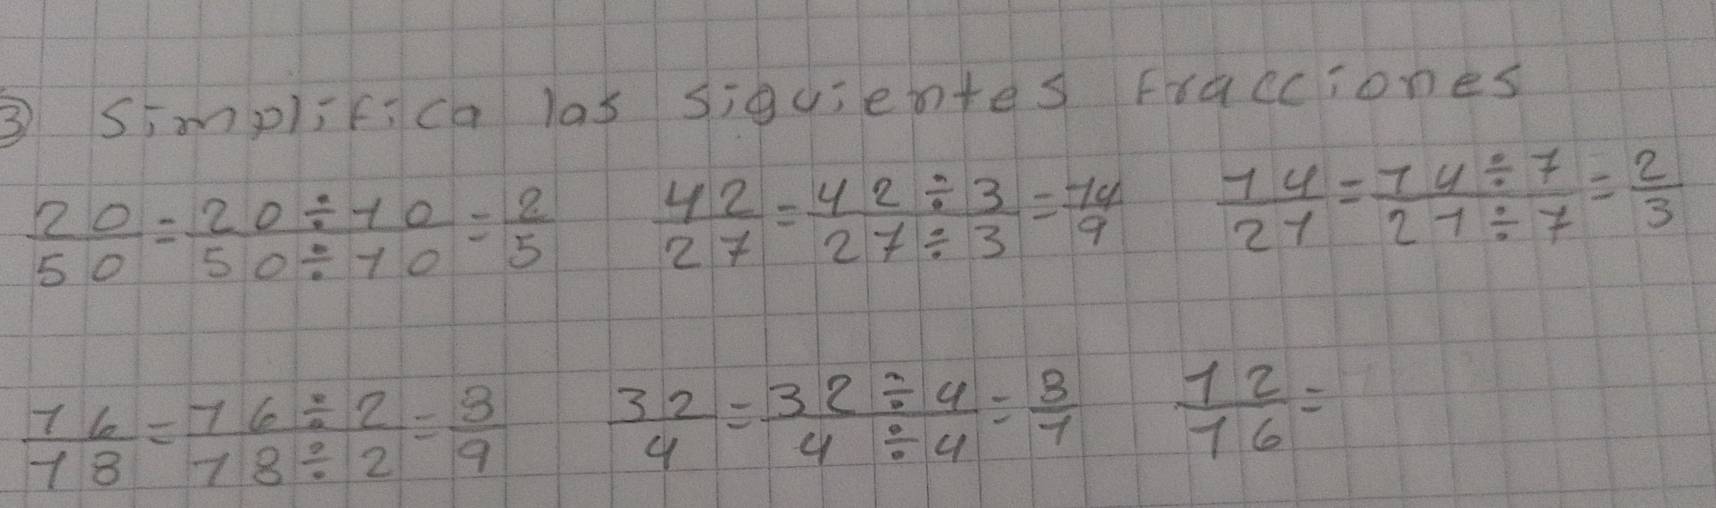 3) Simplifica las siguientes fracciones
20/50 = 20÷10/50÷10 = 2/5   42/27 = 42÷3/27÷3 = 14/9   14/21 = 14÷7/21÷7 = 2/3
16/18 = 16÷2/18÷2 = 8/9   32/4 = 32÷4/4÷4 = 8/1   12/16 =